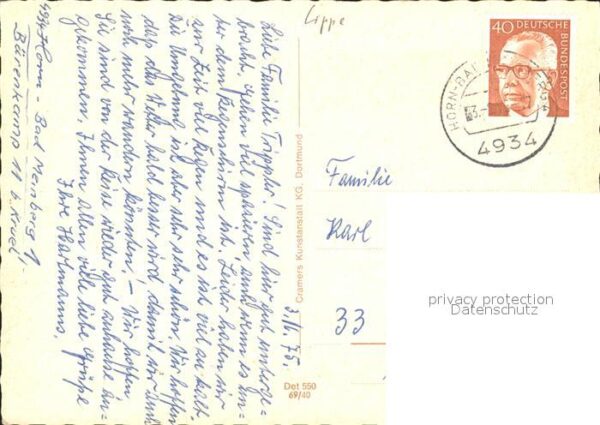 Lippe
40 DEUTSCHE BUNDESPOST
HORN-BAD
4934
3.IV.75.
Liebe Familie Trippler! Sind hier gut unterge=
bracht, gehen viel spazieren auch wenn es un=
ter dem Regenschirm ist. Leider haben wir
zur Zeit viel Regen und es ist viel zu kalt.
Die Umgebung ist aber sehr sehr schön. Wir hoffen
daß das Wetter bald besser wird, damit wir auch
noch mehr wandern könnten. – Wir hoffen
Sie sind von der Reise wieder gut zuhause an=
gekommen. Ihnen allen viele liebe Grüße
Ihre Hartmanns.
Horn - Bad Meinberg 1,
Bärenkamp 11 b.
Cramers Kunstanstalt KG. Dortmund
Det 550
69/40
Familie
Karl
33
privacy protection
Datenschutz